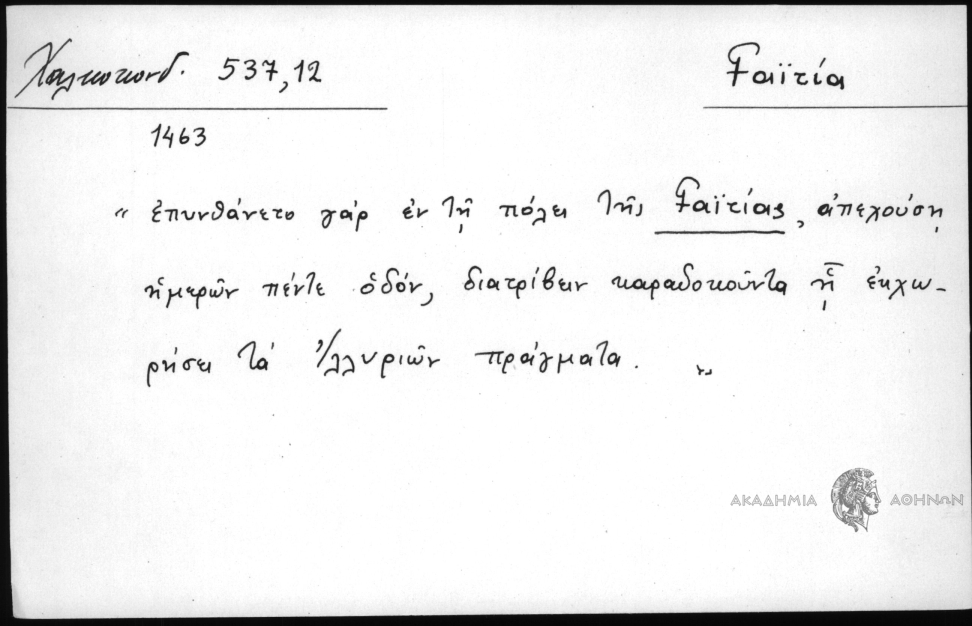 Χαλκοκονδ. 537,12
Γαϊτία
1463
“ ἐπυνθάνετο γάρ ἐν τῇ πόλει τῆς Γαϊτίας, ἀπεχούσῃ
ἡμερῶν πέντε ὁδόν, διατρίβειν καραδοκοῦντα ᾗ ἐκχω-
ρήσει τά Ἰλλυριῶν πράγματα. „
ΑΚΑΔΗΜΙΑ ΑΘΗΝΩΝ